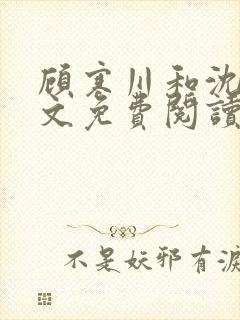 顾寒川和沈
文免費閱讀
不是妖邪有淚